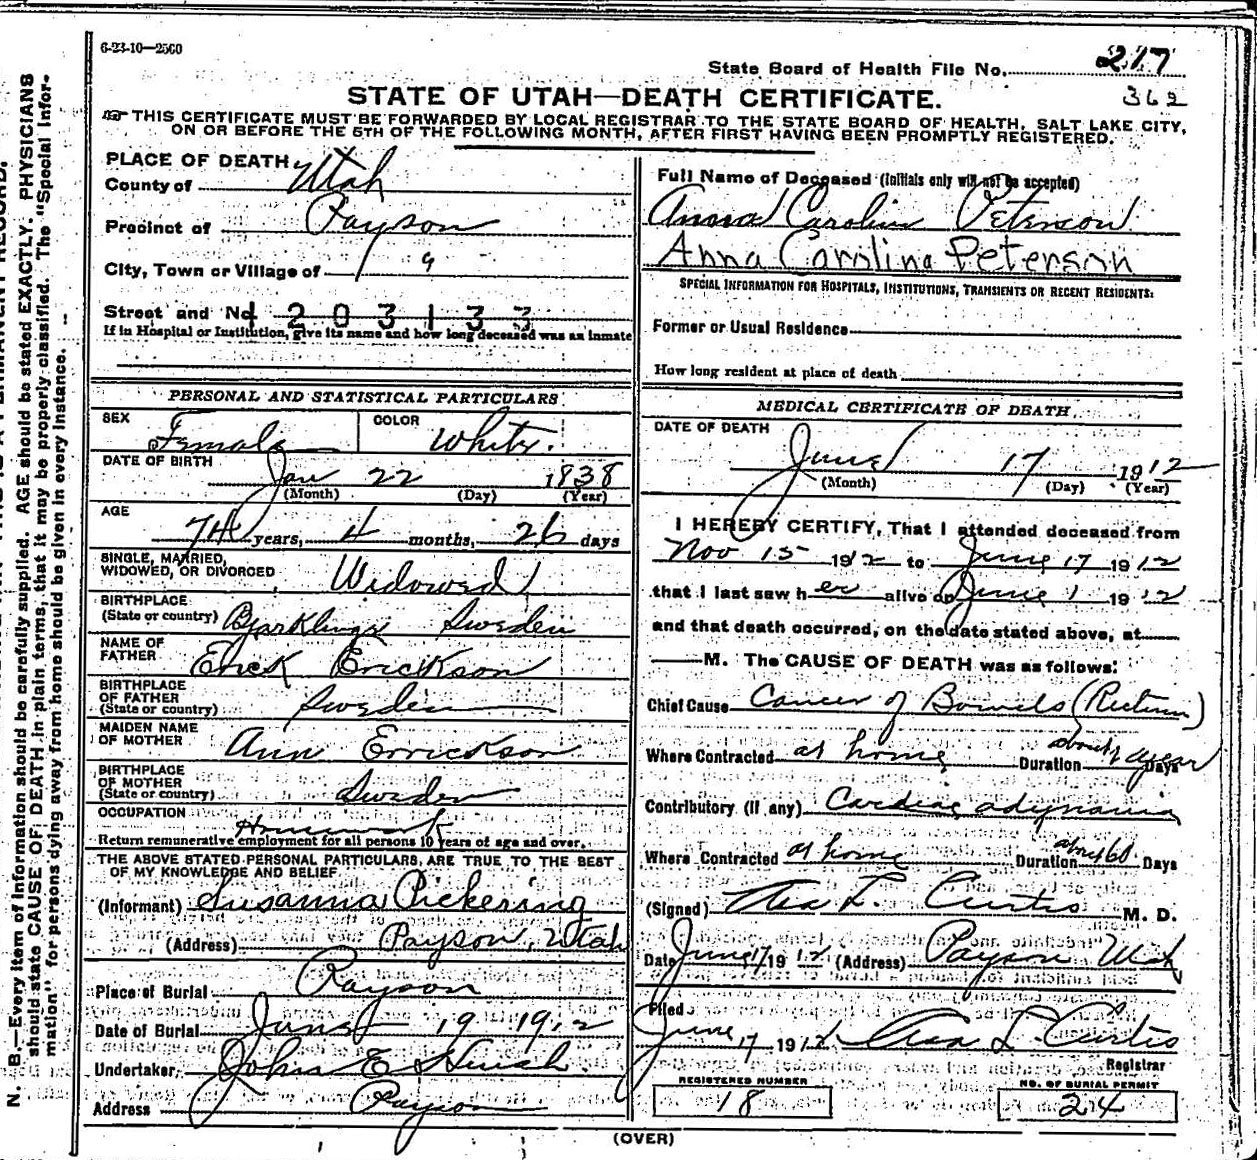 6-23-10—2500
State Board of Health File No. 217
362
STATE OF UTAH—DEATH CERTIFICATE.
THIS CERTIFICATE MUST BE FORWARDED BY LOCAL REGISTRAR TO THE STATE BOARD OF HEALTH, SALT LAKE CITY,
ON OR BEFORE THE 5TH OF THE FOLLOWING MONTH, AFTER FIRST HAVING BEEN PROMPTLY REGISTERED.
PLACE OF DEATH
County of Utah
Precinct of Payson
City, Town or Village of 9
Street and No. 1203133
If in Hospital or Institution, give its name and how long deceased was an inmate
Full Name of Deceased (Initials only will not be accepted)
Anna Carolin Peterson
Anna Carolina Peterson
SPECIAL INFORMATION FOR HOSPITALS, INSTITUTIONS, TRANSIENTS OR RECENT RESIDENTS:
Former or Usual Residence
How long resident at place of death
PERSONAL AND STATISTICAL PARTICULARS
SEX Female COLOR White.
DATE OF BIRTH Jan 22 1838
(Month) (Day) (Year)
AGE
74 years, 4 months, 26 days
SINGLE, MARRIED,
WIDOWED, OR DIVORCED Widowed
BIRTHPLACE
(State or country) Sweden
NAME OF
FATHER Erick Erickson
BIRTHPLACE
OF FATHER
(State or country) Sweden
MAIDEN NAME
OF MOTHER Ann Errickson
BIRTHPLACE
OF MOTHER
(State or country) Sweden
OCCUPATION Housework
Return remunerative employment for all persons 10 years of age and over.
THE ABOVE STATED PERSONAL PARTICULARS, ARE TRUE TO THE BEST
OF MY KNOWLEDGE AND BELIEF
(Informant) Susanna Pickering
(Address) Payson, Utah
Place of Burial Payson
Date of Burial June 19 1912
Undertaker, John E
Address Payson
MEDICAL CERTIFICATE OF DEATH
DATE OF DEATH
June 17 1912
(Month) (Day) (Year)
I HEREBY CERTIFY, That I attended deceased from
Nov 15 1912 to June 17 1912
that I last saw her alive on June 1 1912
and that death occurred, on the date stated above, at
M. The CAUSE OF DEATH was as follows:
Chief Cause Cancer of Bowels (Rectum)
Where Contracted at home Duration about 1 year Days
Contributory (if any) Cardiac adynamia
Where Contracted at home Duration about 60 Days
(Signed) Asa L. Curtis M. D.
Date June 17 1912 (Address) Payson Utah
Filed
June 17 1912 Asa L. Curtis
Registrar
REGISTERED NUMBER
18
NO. OF BURIAL PERMIT
24
(OVER)
N. B.—Every item of information should be carefully supplied. AGE should be stated EXACTLY. PHYSICIANS
should state CAUSE OF DEATH in plain terms, that it may be properly classified. The "Special Infor-
mation" for persons dying away from home should be given in every instance.